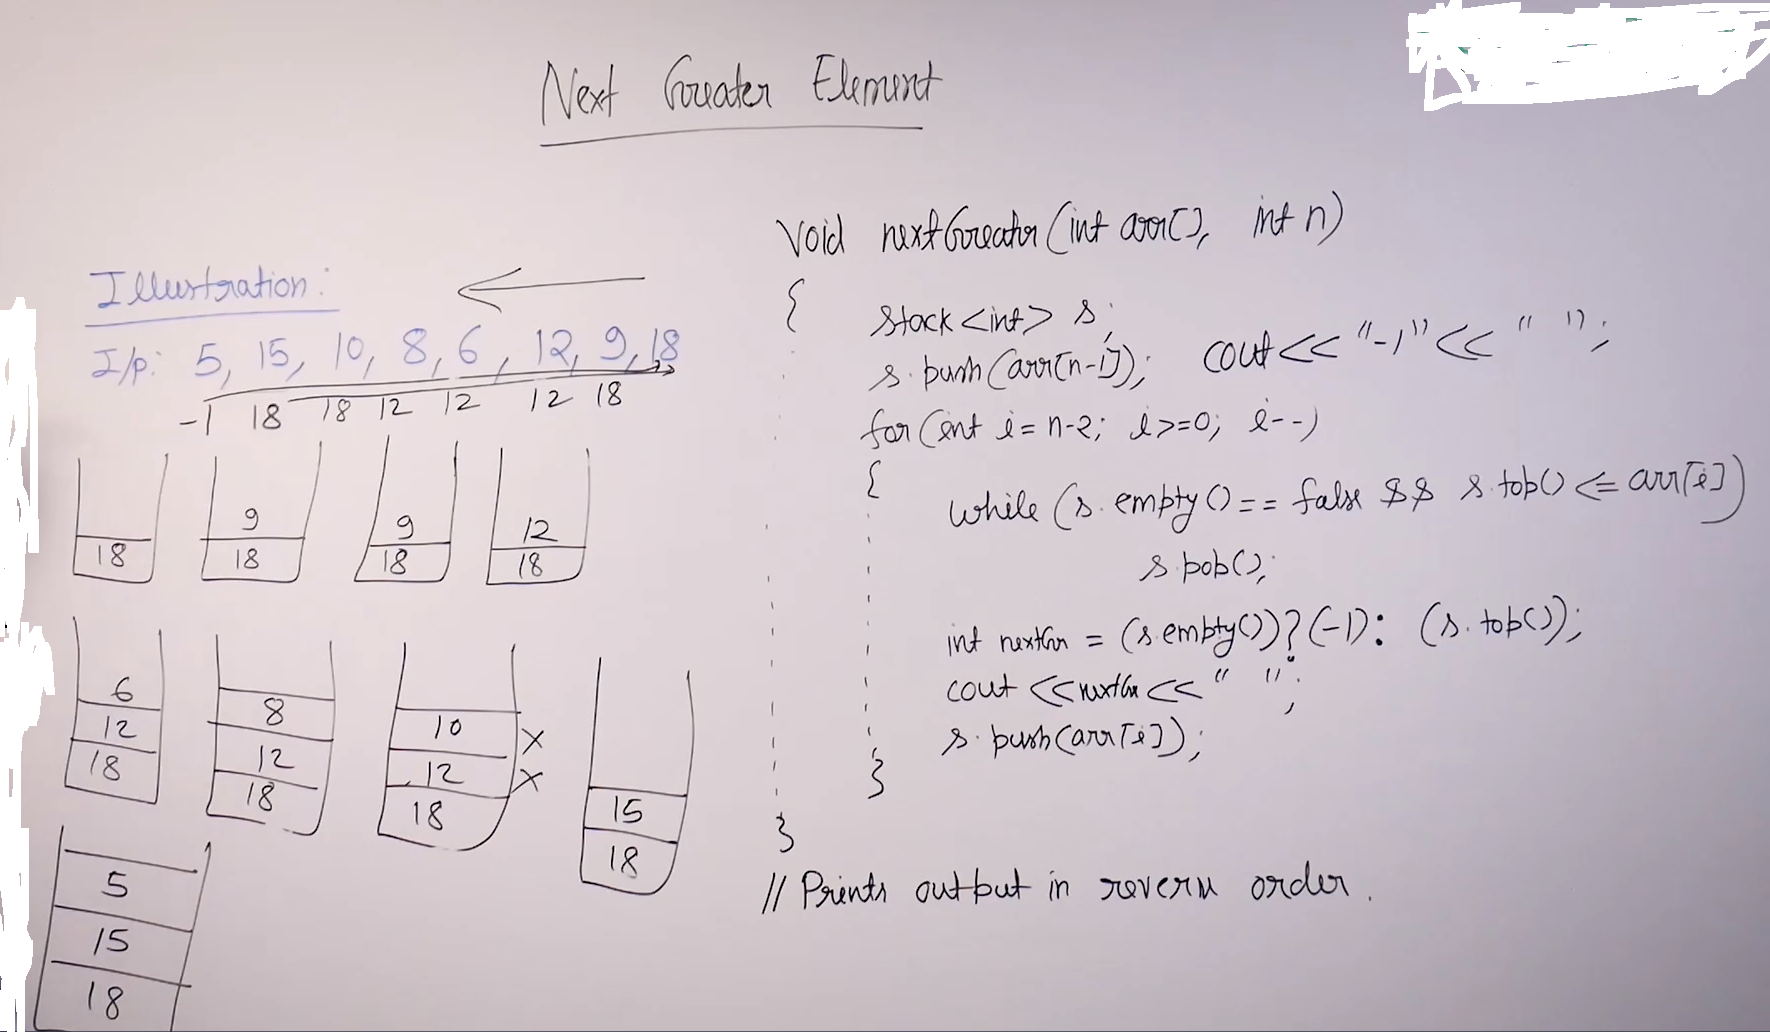 Next Greater Element
Illustration:
I/p: 5, 15, 10, 8, 6, 12, 9, 18
-1 18 18 12 12 12 18
18
9
18
9
18
12
18
6
12
18
8
12
18
10 x
12 x
18
15
18
5
15
18
Void nextGreater (int arr[], int n)
{
stack <int> s;
s.push (arr[n-1]); cout << "-1" << " ";
for (int i = n-2; i >= 0; i--)
{
while (s.empty () == false && s.top() <= arr[i])
s.pop();
int nextGr = (s.empty()) ? (-1) : (s.top());
cout << nextGr << " ";
s.push(arr[i]);
}
}
// Prints output in reverse order.